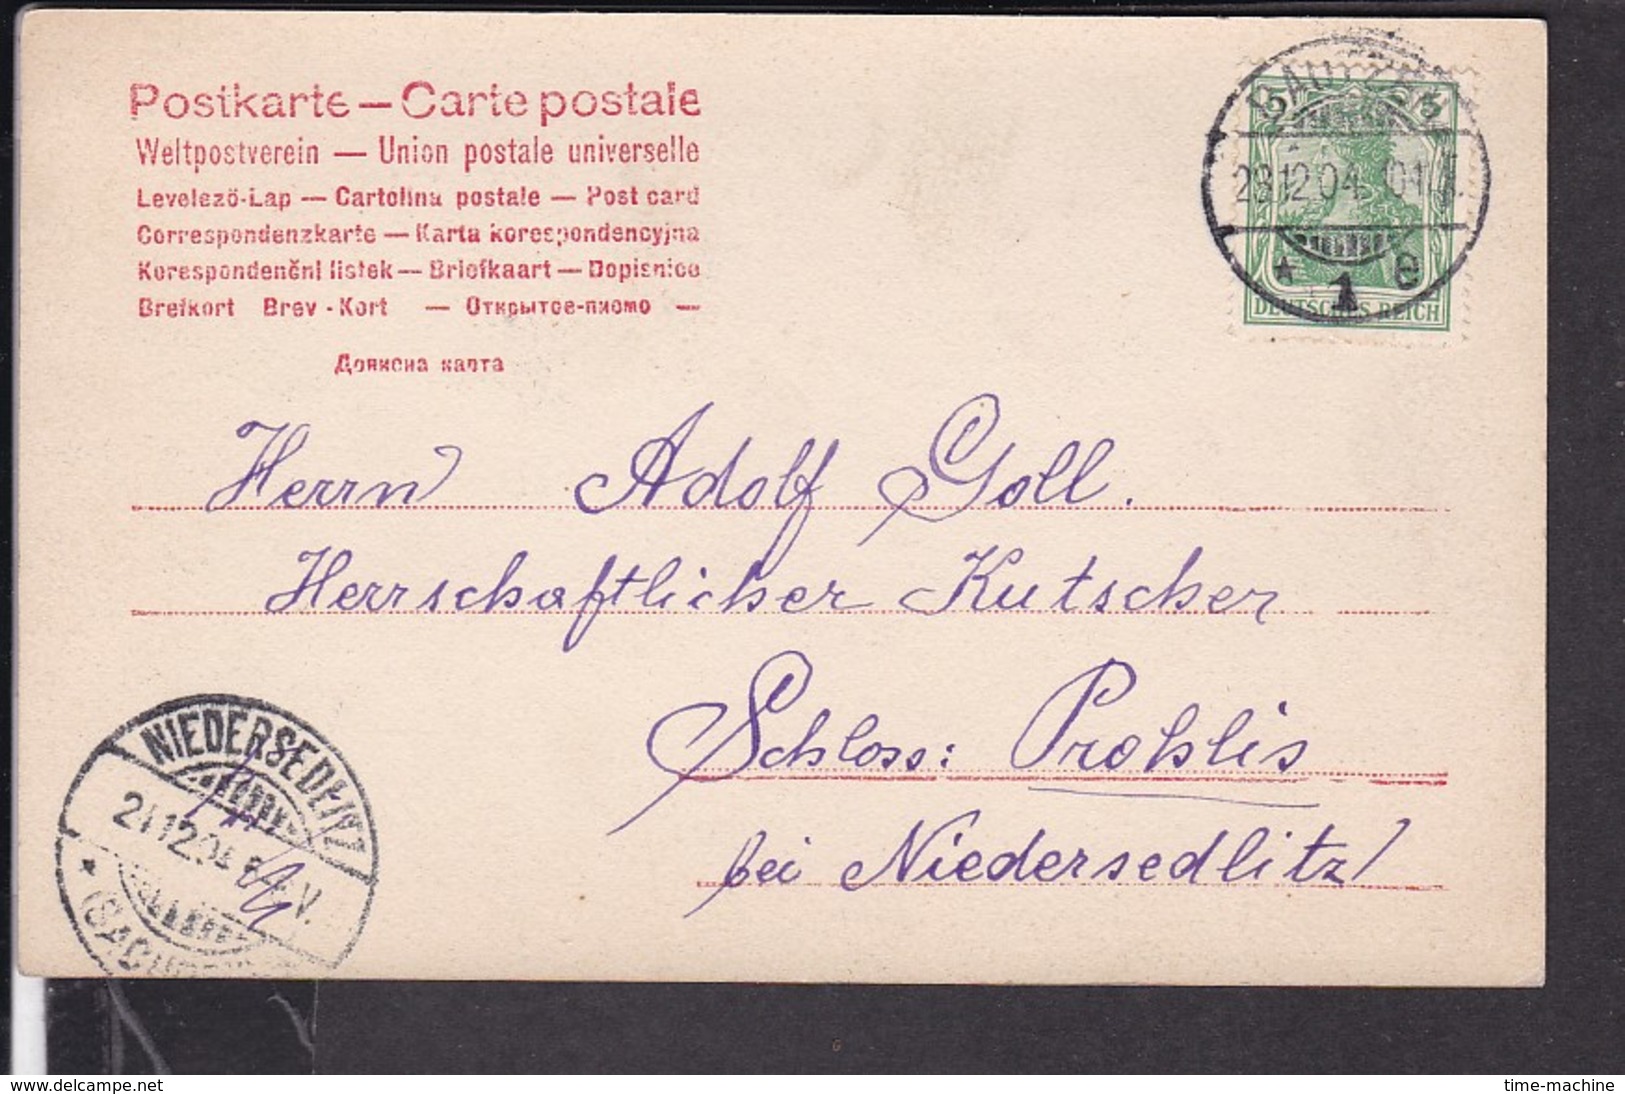 Postkarte — Carte postale
Weltpostverein — Union postale universelle
Levelező-Lap — Cartolina postale — Post card
Correspondenzkarte — Karta korespondencyjna
Korespondenční listek — Briefkaart — Dopisnice
Brefkort Brev-Kort — Открытое-писмо —
Дописна карта
BAUTZEN
5 5
23.12.04. 01
* 1 e
DEUTSCHES REICH
Herrn Adolf Goll.
Herrschaftlicher Kutscher
Schloss: Prohlis
bei Niedersedlitz/
NIEDERSEDLITZ
24.12.04 V.
* (SACHSEN)
www.delcampe.net
time-machine